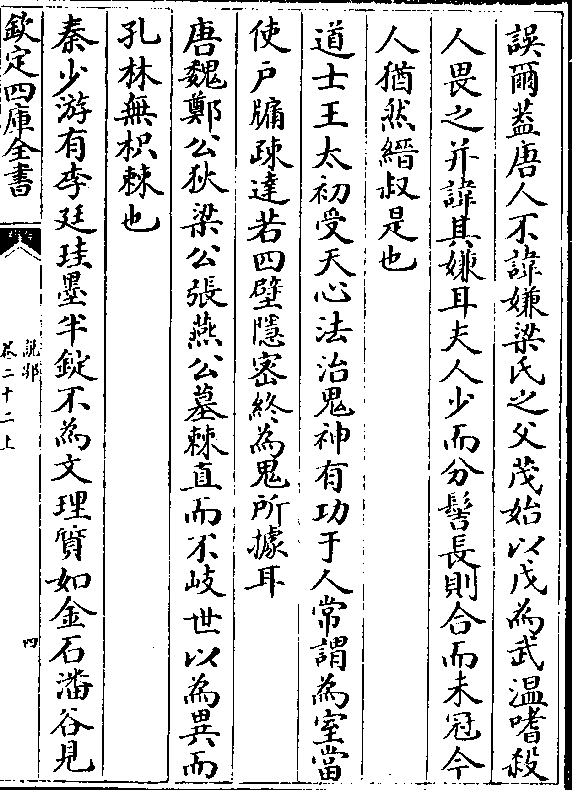 誤爾葢唐人不諱嫌梁氏之父茂始以戊為武温嗜殺
人畏之并諱其嫌耳夫人少而分髻長則合而未冠今
人猶然縉叔是也
道士王太初受天心法治鬼神有功于人常謂為室當
使戸牖疎達若四壁隱密終為鬼所據耳
唐魏鄭公狄梁公張燕公墓棘直而不岐世以為異而
孔林無枳棘也
秦少游有李廷珪墨半錠不為文理質如金石潘谷見
欽定四庫全書
說郛
卷二十二上
四